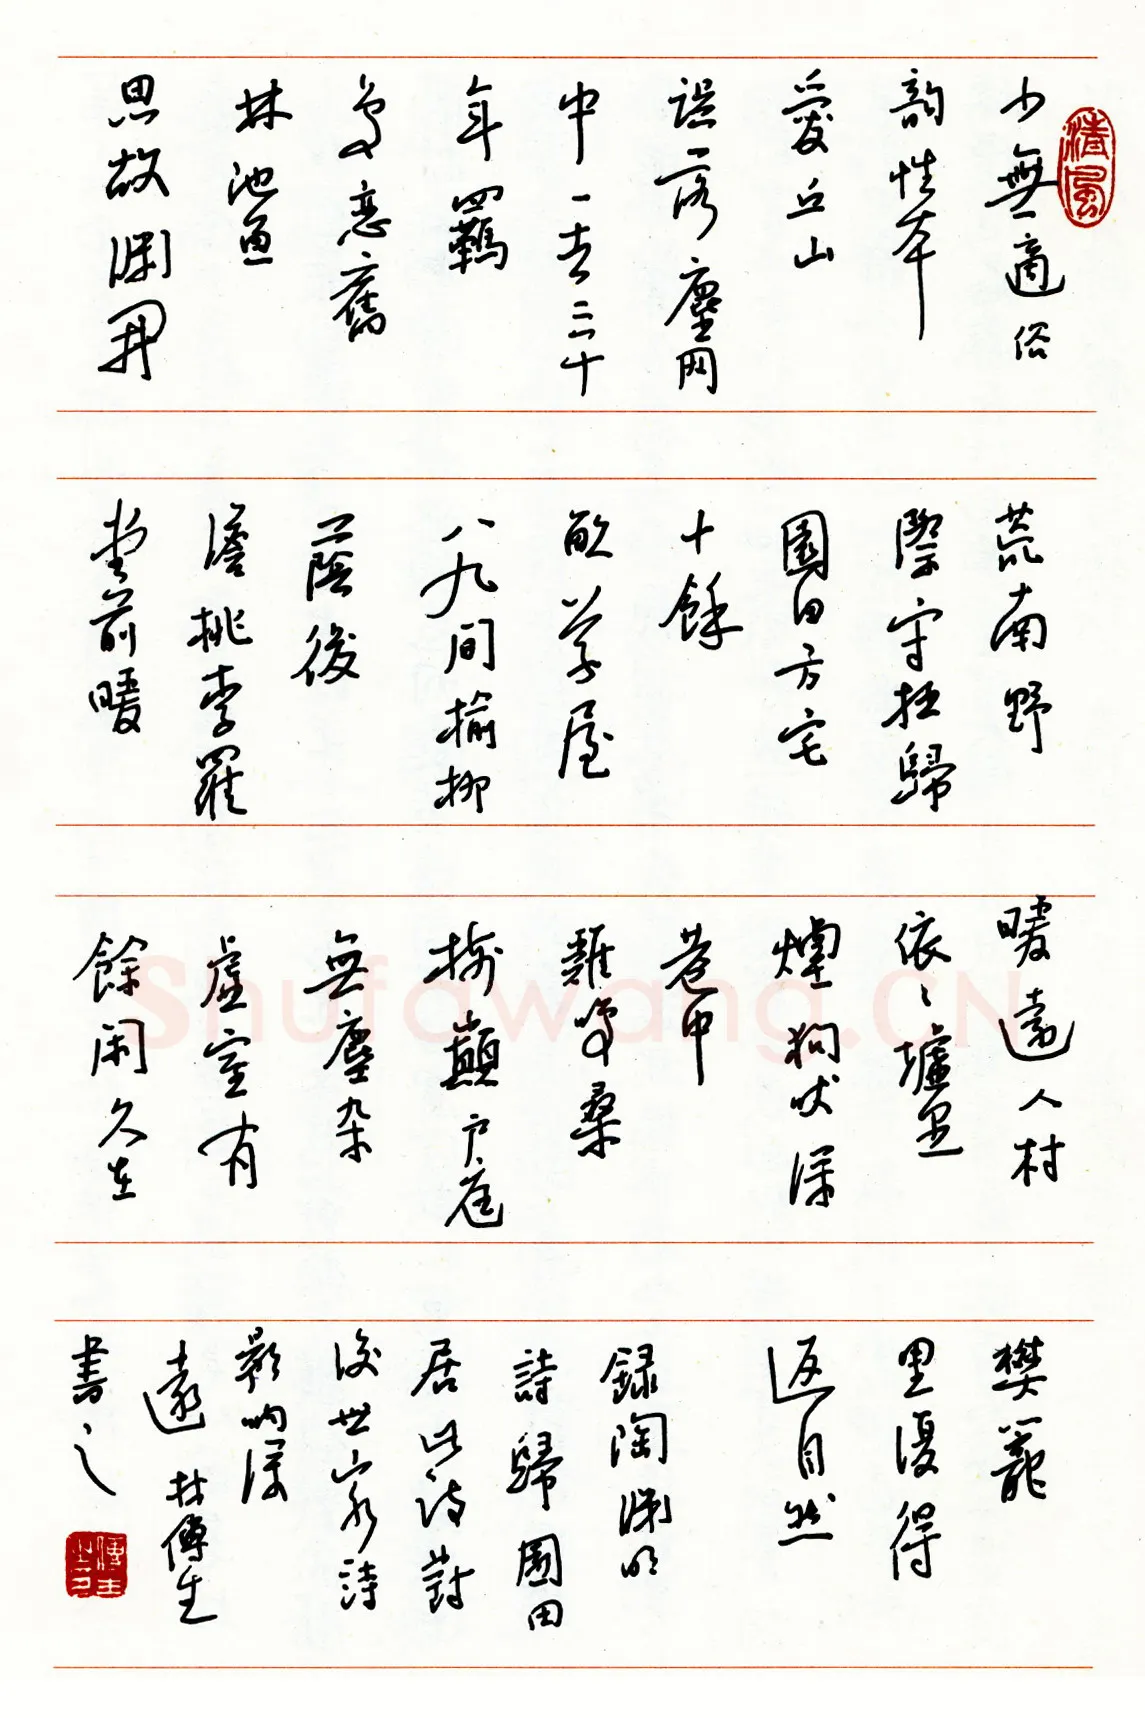 清風
少無適俗
韻性本
愛丘山
誤落塵网
中一去三十
年羈
鳥恋舊
林池魚
思故渊開
荒南野
際守拙歸
園田方宅
十餘
畝草屋
八九間榆柳
蔭後
簷桃李羅
堂前曖
曖遠人村
依〻墟里
煙狗吠深
巷中
雞鳴桑
樹巔户庭
無塵杂
虚室有
餘闲久在
樊籠
里復得
返自然
録陶渊明
詩歸園田
居此诗對
後世山水詩
影响深
遠 林傅生
書之
Shufawang.CN